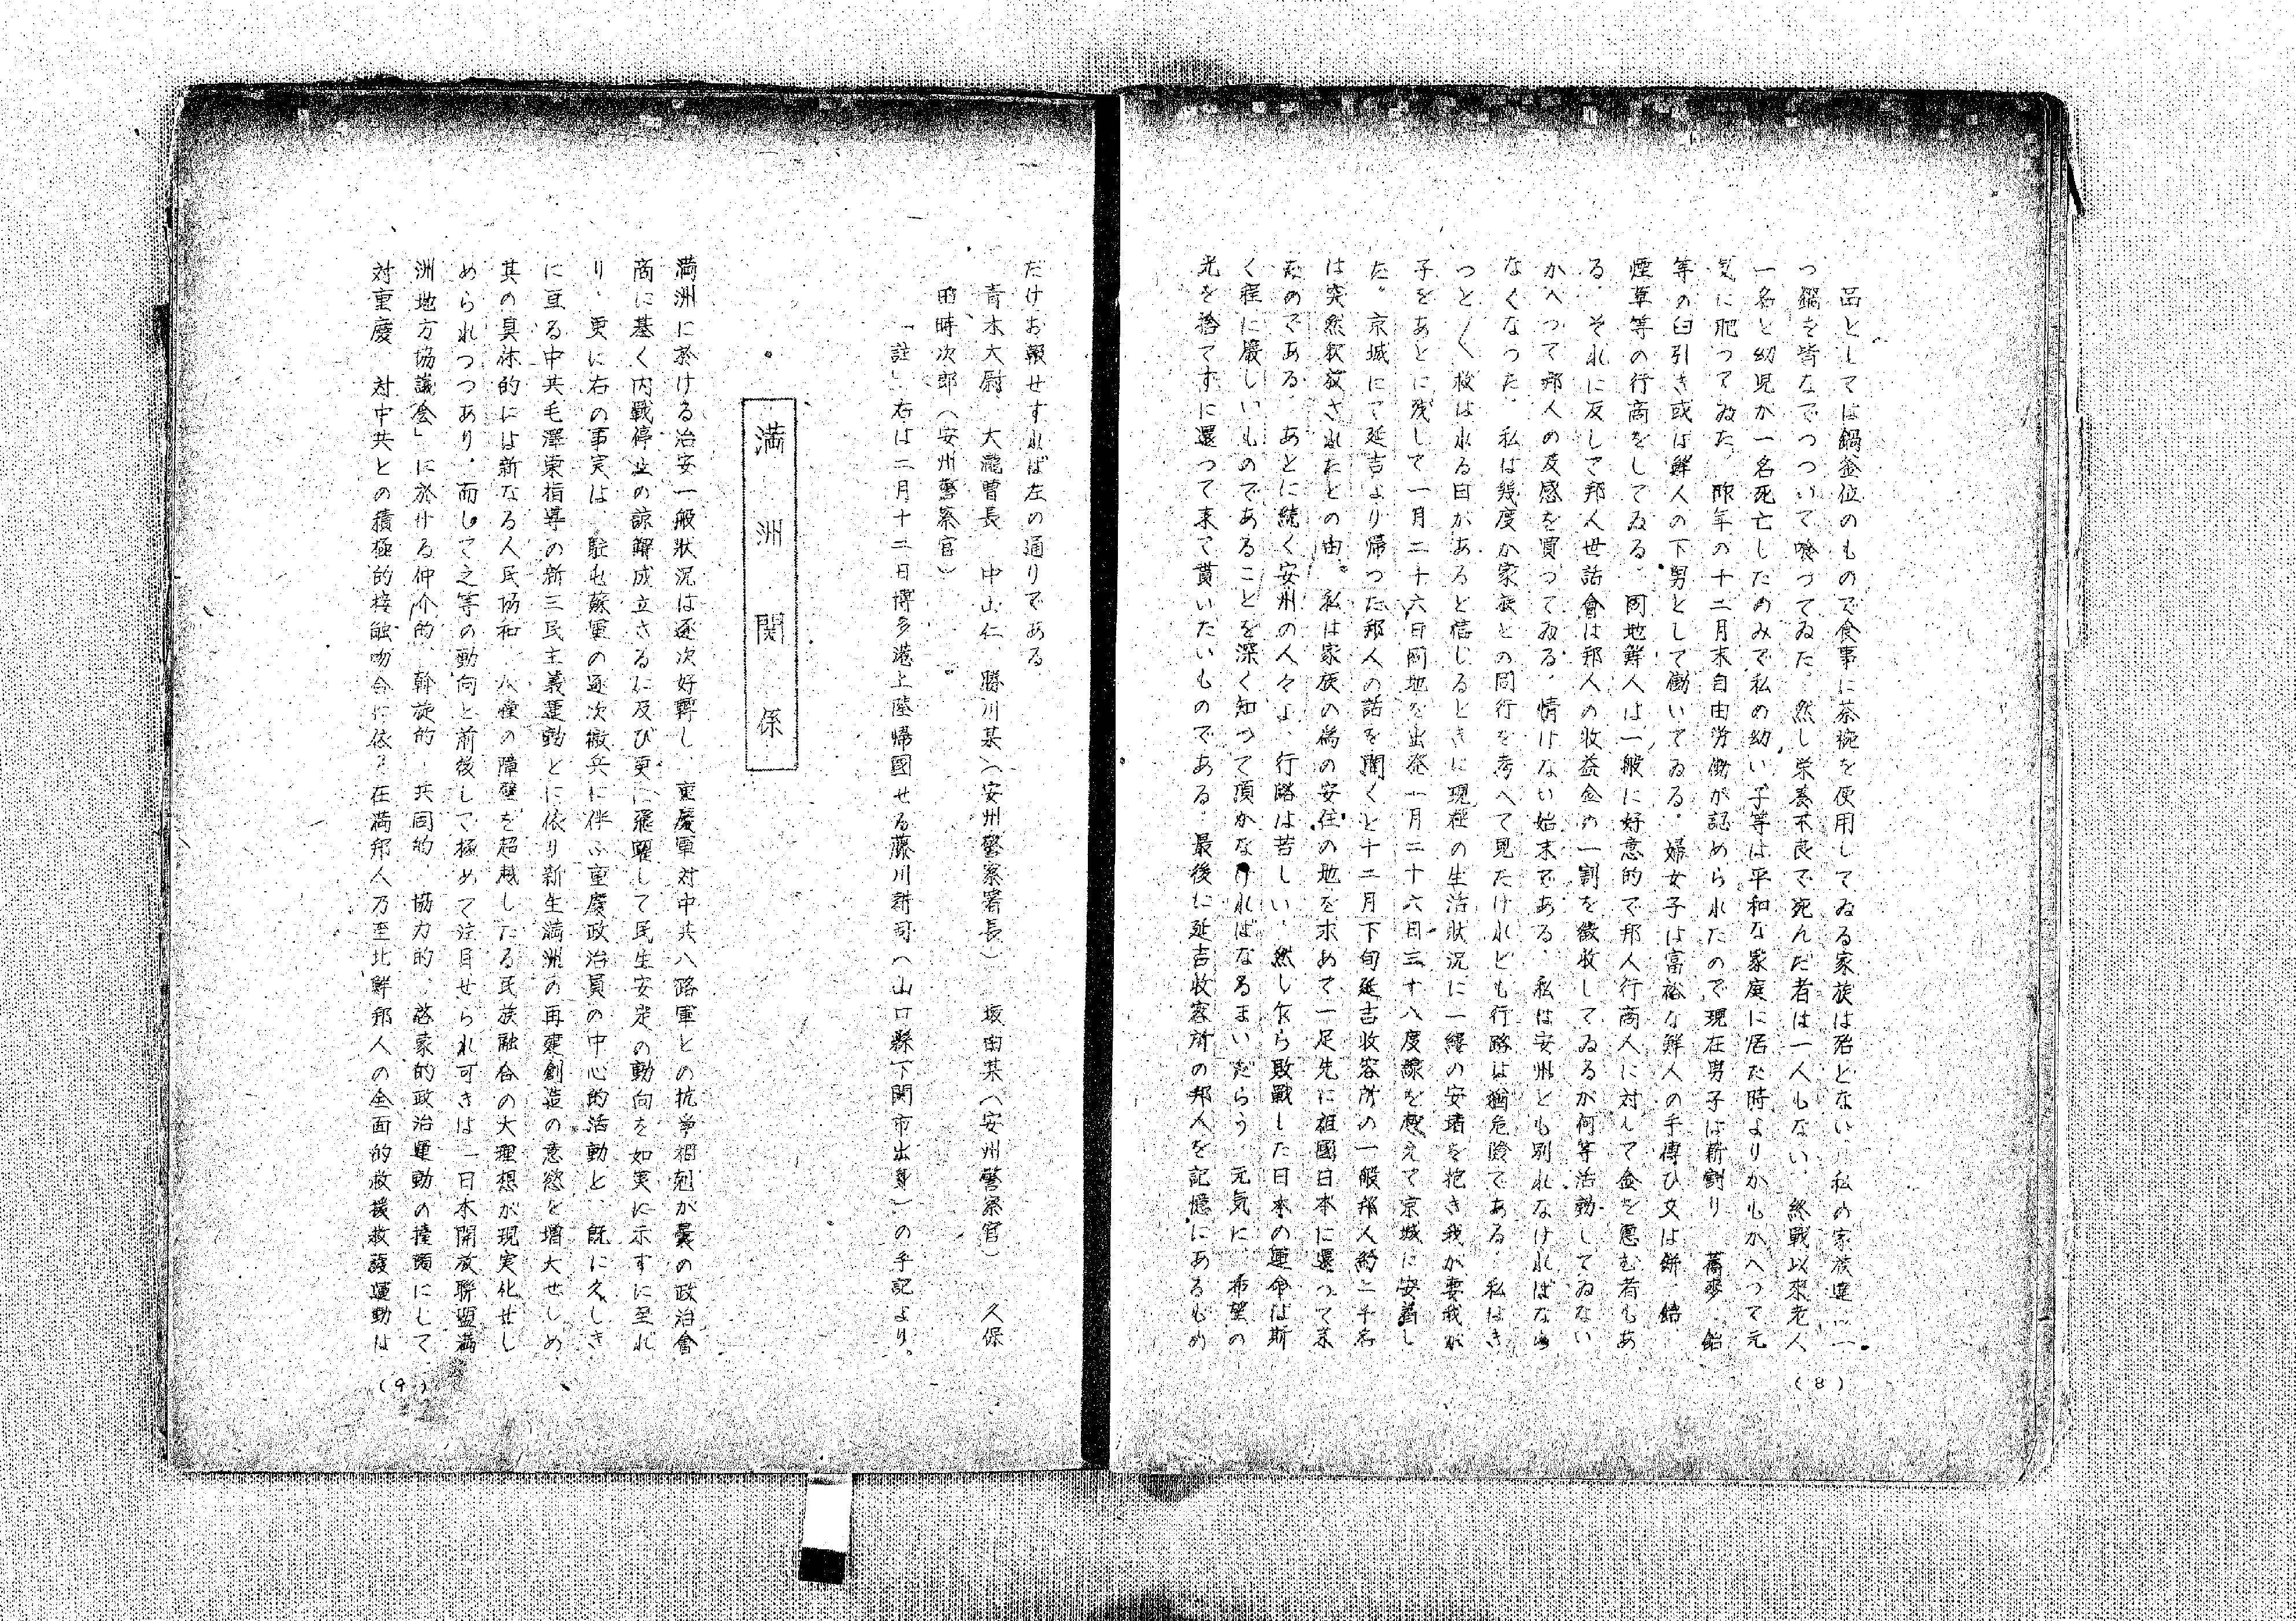 品としては鍋釜位のもので食事に茶椀を使用してゐる家族は殆とない、私の家族達一
つ鍋を皆なでつついて喰つてゐた。然し栄養不良で死んだ者は一人もない、終戰以來老人
一名と幼児か一名死亡したのみで私の幼い子等は平和な家庭に居た時よりかもかへつて元
気に肥つてゐた。昨年の十二月末自由労働が認められたので現在男子は薪割り、蕎麥、飴
等の臼引き或は鮮人の下男として働いてゐる。婦女子は富裕な鮮人の手傳ひ又は餅、飴、
煙草等の行商をしてゐる。同地鮮人は一般に好意的で邦人行商人に対して金を惠む者もあ
る、それに反して邦人世話會は邦人の收益金の一割を徴收してゐるが何等活動してゐない
かへつて邦人の反感を買つてゐる、情けない始末である、私は安州とも別れなければなら
なくなつた、私は幾度か家族との同行を考へて見たけれども行路は猶危険である、私はき
つと〳〵救はれる日があると信じるときに現在の生活狀況に一縷の安堵を抱き我が妻我が
子をあとに残して一月二十六日同地を出発一月二十六日三十八度線を越えて京城に安着し
た。京城にて延吉より帰つた邦人の話を聞くと十二月下旬延吉收容所の一般邦人約二千名
は突然釈放されたとの由。私は家族の為の安住の地を求めて一足先に祖國日本に還つて来
たのである、あとに続く安州の人々よ、行路は苦しい、然し乍ら敗戰した日本の運命は斯
く程に厳しいものであることを深く知つて頂かなければなるまいだらう、元気に、希望の
光を捨てずに還つて来て貰いたいものである、最後に延吉收容所の邦人を記憶にあるもの
(8)
だけお報せすれば左の通りである
青木大尉 大瀧曹長 中山仁、勝川某（安州警察署長） 坂田某（安州警察官） 久保
田時次郎（安州警察官）。
「註」右は二月十二日博多港上陸帰國せる藤川耕司（山口縣下関市出身）の手記より。
満洲関係
満洲に於ける治安一般狀況は逐次好轉し、重慶軍対中共八路軍との抗争相剋が曩の政治會
商に基く内戰停止の諒解成立さるに及び更に飛躍して民生安定の動向を如実に示すに至れ
り、更に右の事実は、駐屯蘇軍の逐次撤兵に伴ふ重慶政治員の中心的活動と、既に久しき
に亘る中共毛澤東指導の新三民主義運動とに依り新生満洲の再建創造の意慾を増大せしめ、
其の具体的には新なる人民協和、人種の障壁を超越したる民族融合の大理想が現実化せし
められつつあり、而して之等の動向と前後して極めて注目せられ可きは「日本開放聯盟満
洲地方協議会」に於ける仲介的、斡旋的、共同的、協力的、啓蒙的政治運動の擡頭にして
対重慶、対中共との積極的接触吻合に依る在満邦人乃至北鮮邦人の全面的救援救護運動は
(9)